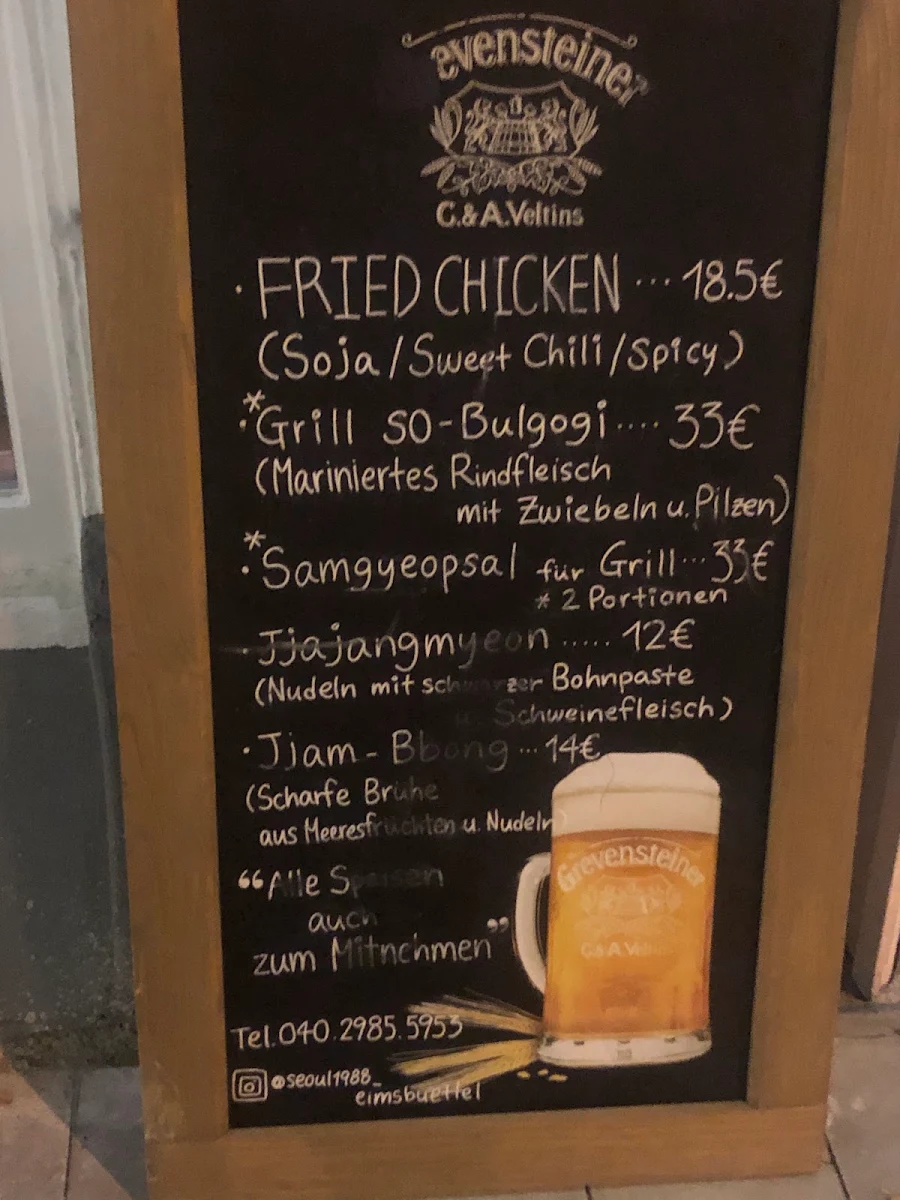 evensteiner
C.&A.Veltins
· FRIED CHICKEN ··· 18.5€
(Soja/Sweet Chili/Spicy)
*
· Grill SO-Bulgogi ···· 33€
(Mariniertes Rindfleisch
mit Zwiebeln u. Pilzen)
*
· Samgyeopsal für Grill ··· 33€
* 2 Portionen
· Jjajangmyeon ..... 12€
(Nudeln mit schwarzer Bohnpaste
u. Schweinefleisch)
· Jjam-Bbong ... 14€
(Scharfe Brühe
aus Meeresfrüchten u. Nudeln)
“Alle Speisen
auch
zum Mitnehmen”
Grevensteiner
C.&A.Veltins
Tel.040.2985.5953
@seoul1988_
eimsbuettel